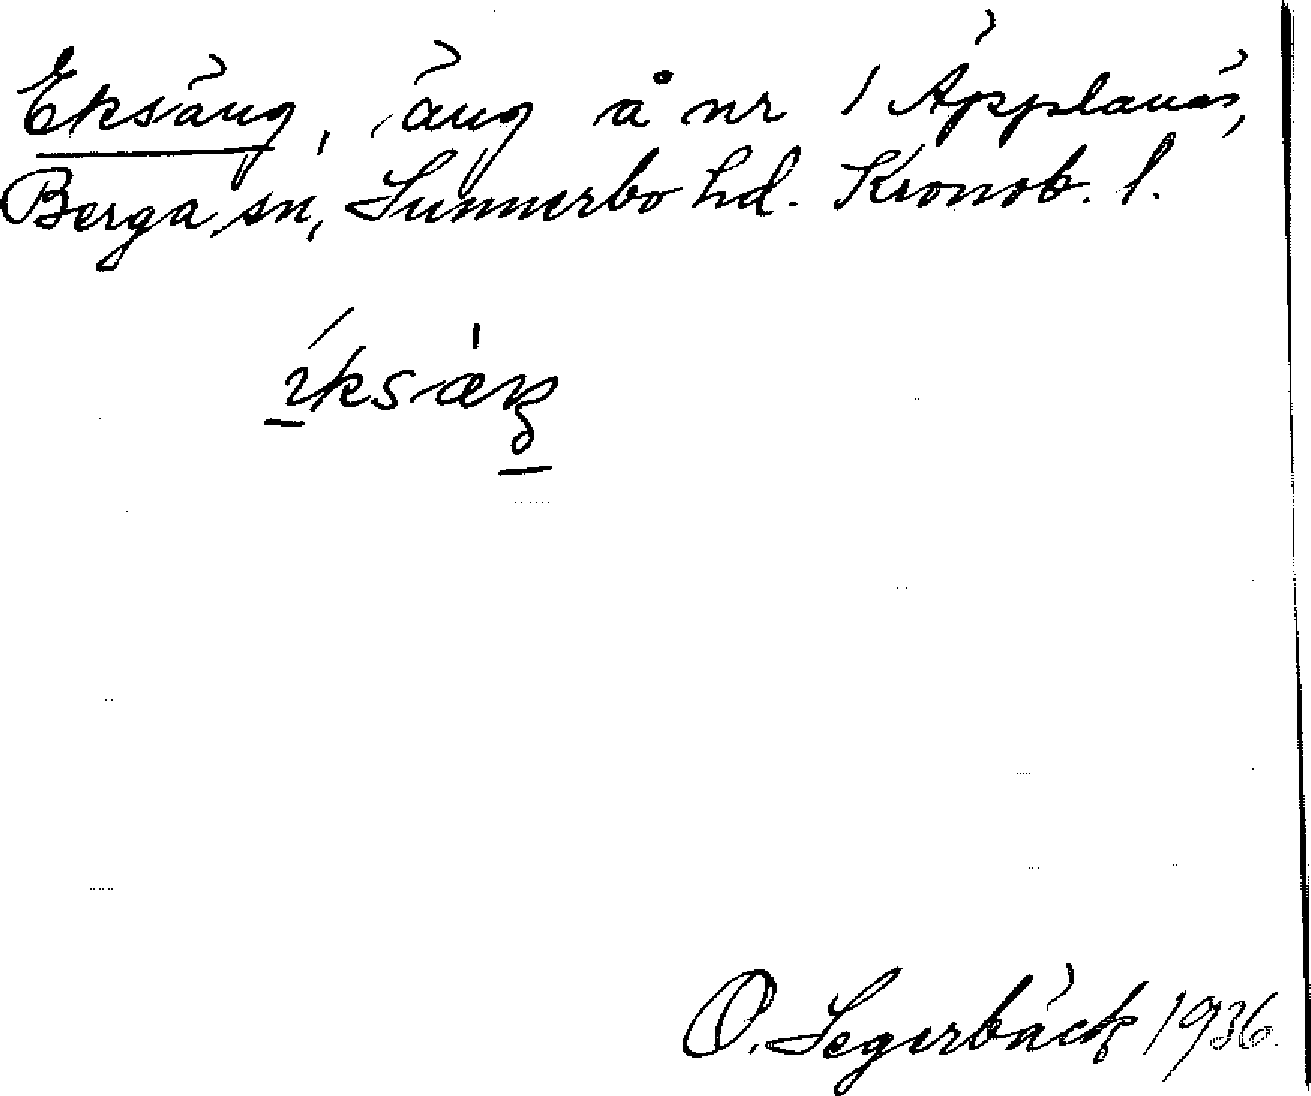 Eksäng, äng å nr 1 Äpplanäs,
Berga sn, Sunnerbo hd. Kronob. l.
O. Segerbäck 1936.